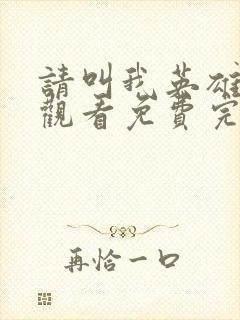 請叫我英雄
觀看免費完
再恰一口